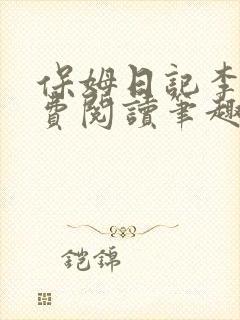 保姆日記李
費閱讀筆趣
鎧錦